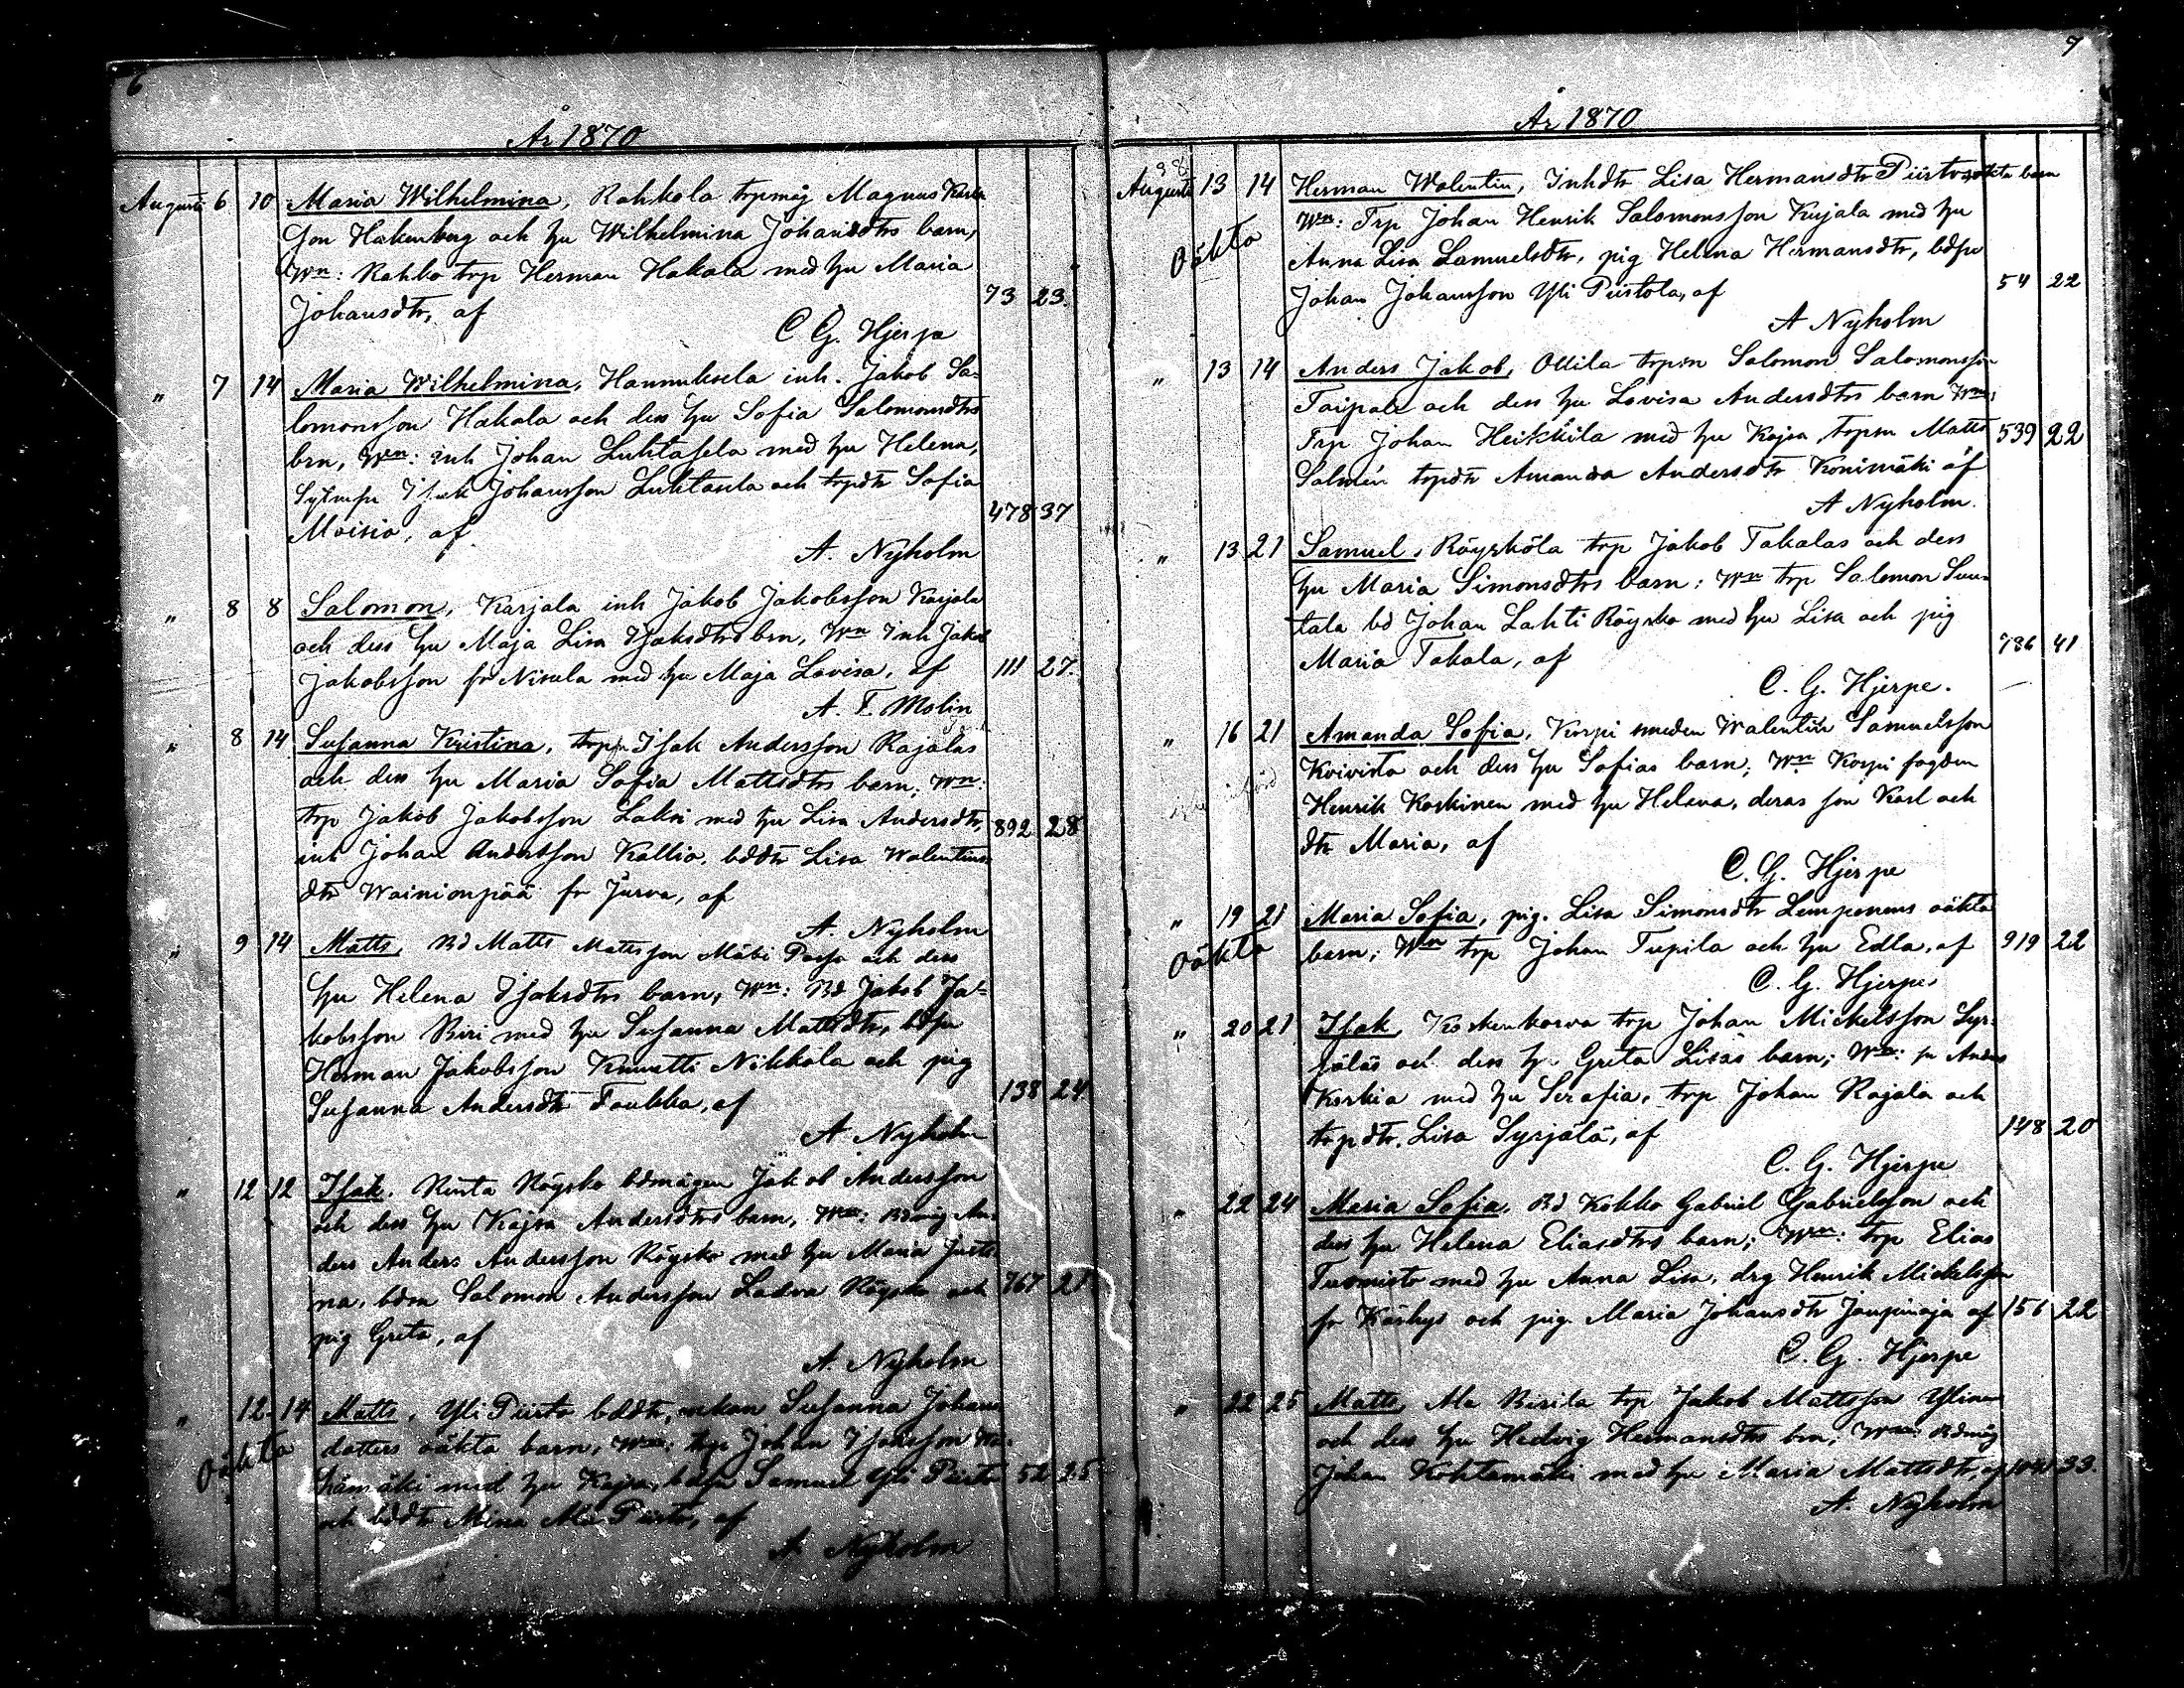 6
År 1870
Augusti 6 10 Maria Wilhelmina, Rahkola trpmåg Magnus Karls
son Hakenberg och hu Wilhelmina Johansdtrs barn,
Wn: Rahko trp Herman Hakala med hu Maria
Johansdtr, af 73 23.
C G. Hjerpe
" 7 14 Maria Wilhelmina, Hannuksela inh. Jakob Sa-
lomonsson Hakala och dess hu Sofia Salomonsdtrs
brn, Wn: inh Johan Luhtasela med hu Helena,
Isak Johansson Luhtasela och trpdtr Sofia
Moisio, af 478 37
A. Nyholm
" 8 8 Salomon, Karjala inh Jakob Jakobsson Karjala
och dess hu Maja Lisa Isaksdtrs brn, Wn Inh Jakob
Jakobsson fr Nisula med hu Maja Lovisa, af 111 27.
A. F. Molin
" 8 14 Susanna Kristina, Isak Andersson Rajalas
och dess hu Maria Sofia Mattsdtrs barn; Wn:
trp Jakob Jakobsson Laksi med hu Lisa Andersdtr, 892 28
inh Johan Andersson Kallio, bddtr Lisa Walentins
dtr Wainionpää fr Jurva, af
A. Nyholm
" 9 14 Matts, Bd Matts Mattsson Mäki Passo och dess
hu Helena Isaksdtrs barn, Wn: Bd Jakob Ja-
kobsson Biri med hu Susanna Mattsdtr, bdsn
Herman Jakobsson Nikkola och pig
Susanna Andersdtr Toukka, af 138 24
A Nyholm
" 12 12 Isak. Rinta Röysko bdmågen Jakob Andersson
och dess hu Kajsa Andersdtrs barn, Wn: Bdmåg An-
ders Anders Andersson Röysko med hu Maria Justi-
na, bdsn Salomon Andersson Ladva Röysko och 767 21
pig Greta, af
A. Nyholm
" 12 14 Matts, Yli Piirto bddtr, enkan Susanna Johans
Oäkta dotters oäkta barn, Wn: trp Johan Isaksson
med hu Kajsa, bdsn Samuel Yli Piirto 52 25
och bddtr Mina Ala Piirto, af
A. Nyholm
7
År 1870
98
Augusti 13 14 Herman Walentin, Inhdtr Lisa Hermansdtr Piirto oäkta barn
Oäkta Wn: Trp Johan Henrik Salomonsson Kujala med hu
Anna Lisa Samuelsdtr, pig Helena Hermansdtr, bdsn
Johan Johansson Yli Piirtola, af 54 22
A Nyholm
" 13 14 Anders Jakob, Ollila trpsn Salomon Salomonsson
Taipale och dess hu Lovisa Andersdtrs barn Wn:
Trp Johan Heikkilä med hu Kajsa, trpsn Matts 539 22
Salmén trpdtr Amanda Andersdtr Konimäki af
A Nyholm.
" 13 21 Samuel, Röysköla trp Jakob Takalas och dess
hu Maria Simonsdtrs barn: Wn trp Salomon Luu-
tala bd Johan Lahti Röysko med hu Lisa och pig
Maria Takala, af 736 41
C. G. Hjerpe.
" 16 21 Amanda Sofia, Korpi smeden Walentin Samuelsson
Koivisto och dess hu Sofias barn; Wn Korpi fogden
Henrik Koskinen med hu Helena, deras son Karl och
dtr Maria, af
C. G. Hjerpe
" 19 21 Maria Sofia, pig. Lisa Simonsdtr Lemponens oäkta
Oäkta barn; Wn trp Johan Tupila och hu Edla, af 919 22
C. G. Hjerpe
" 20 21 Isak, Koskenkorva trp Johan Mickelsson Syr-
jäläs och dess hu Greta Lisas barn; Wn: sn Anders
Korkia med hu Serafia, trp Johan Rajala och
trpdtr. Lisa Syrjälä, af 148 20
C. G. Hjerpe
" 22 24 Maria Sofia, Bd Kokko Gabriel Gabrielsson och
dess hu Helena Eliasdtrs barn; Wn: trp Elias
Tuomisto med hu Anna Lisa, drg Henrik Mickelsson
fr Kärkys och pig Maria Johansdtr Joupinoja af 156 22
C. G. Hjerpe
" 22 25 Matts, Ala Birila trp Jakob Mattsson Ylinen
och dess hu Hedvig Hermansdtrs brn; Wn: Bdmåg
Johan Kohtamäki med hu Maria Mattsdtr, af 33.
A. Nyholm